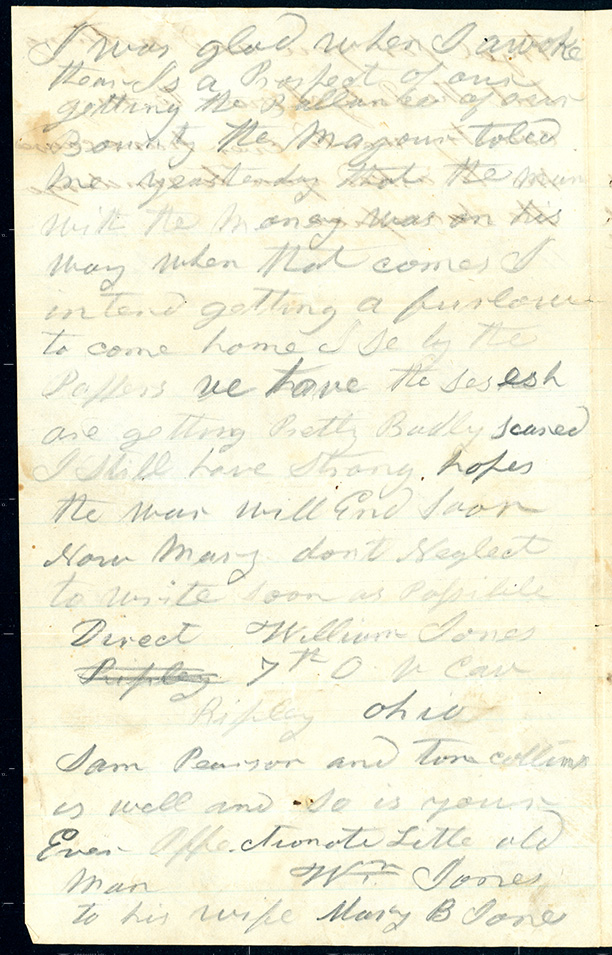 I was glad when I awoke
thear Is a Prospect of our
getting the Ballance of our
Bounty the Mayour toled
me yeasterday that the man
with the Money was on his
way when that comes I
intend getting a furlow
to come home I se by the
Papers we have the sesesh
are getting Pretty Badly scared
I still have Strong hopes
the war will End Soon
Now Mary dont Neglect
to write soon as Possibile
Direct William Jones
Ripley 7th O V Cav
Ripley Ohio
Sam Pearson and tom collins
is well and So is your
Ever Affectionate Little old
man Wm Jones
to his wife Mary B Jones